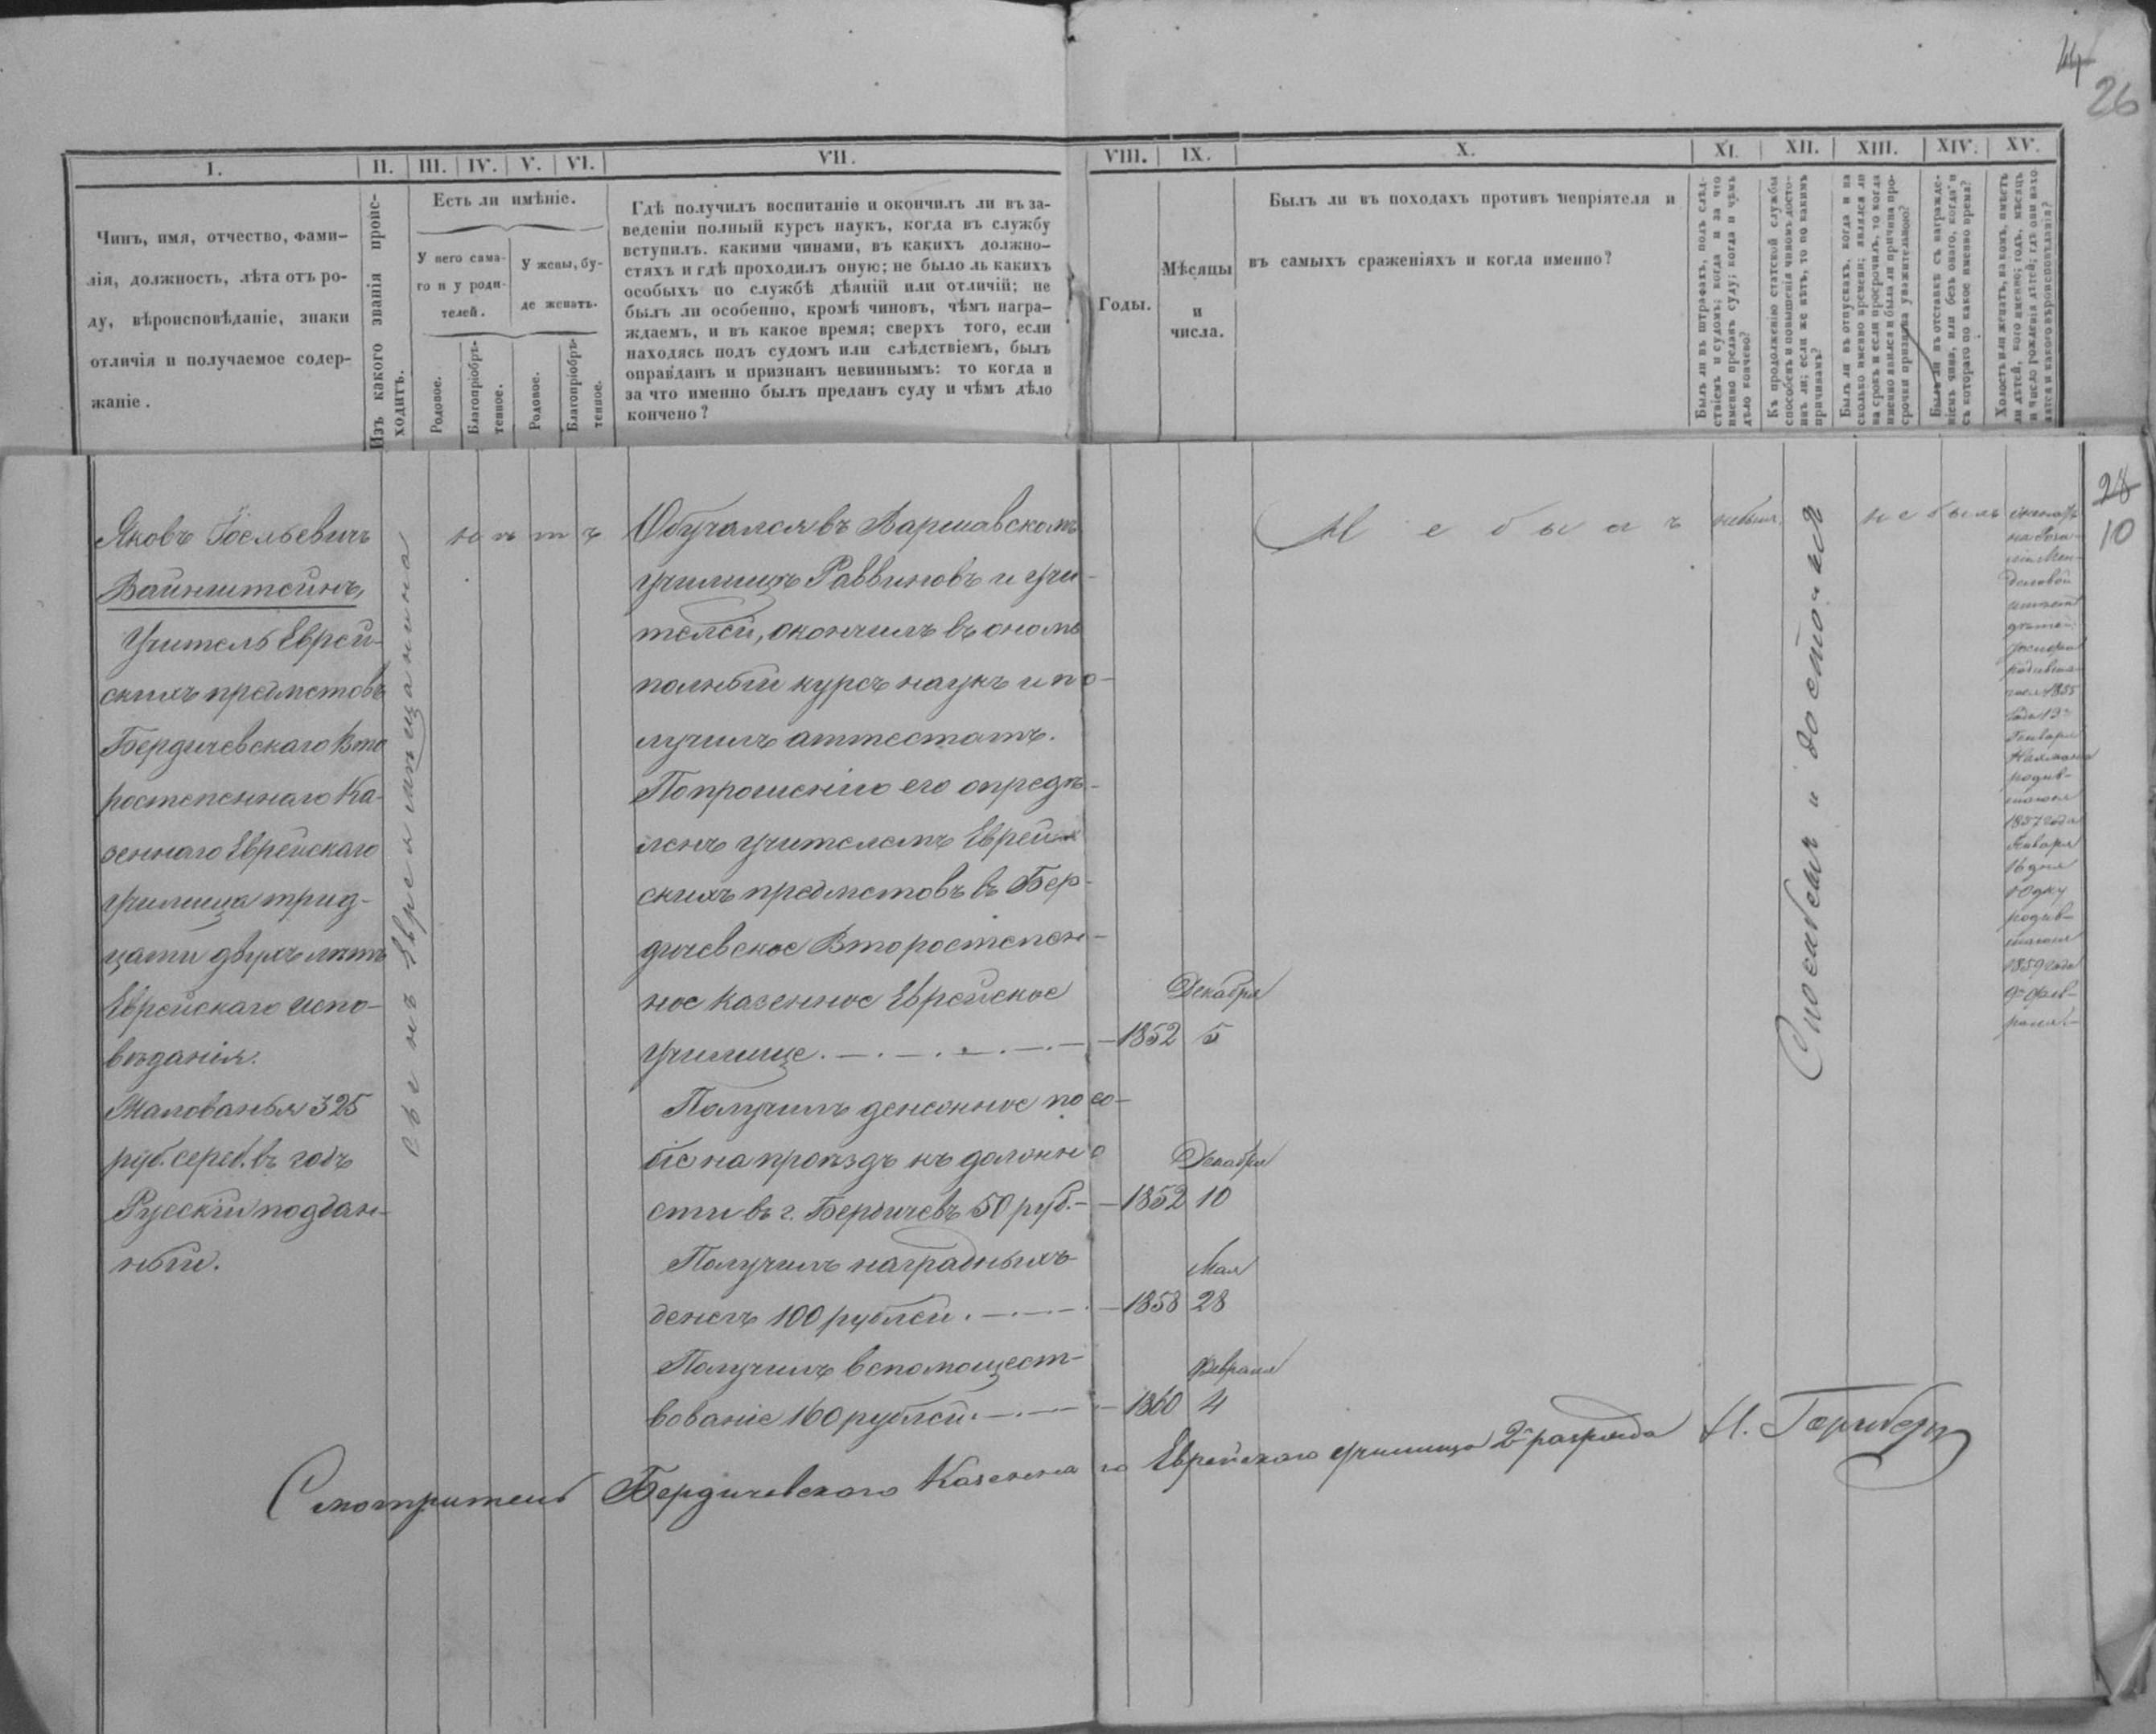 44
26
I.
II.
III.
IV.
V.
VI.
VII.
VIII.
IX.
X.
XI.
XII.
XIII.
XIV.
XV.
Чинъ, имя, отчество, фами-
лія, должность, лѣта отъ ро-
ду, вѣроисповѣданіе, знаки
отличія и получаемое содер-
жаніе.
Изъ какого званія проис-
ходитъ.
Есть ли имѣніе.
У него сама-
го и у роди-
телей.
У жены, бу-
де женатъ.
Родовое.
Благопріобрѣ-
тенное.
Родовое.
Благопріобрѣ-
тенное.
Гдѣ получилъ воспитаніе и окончилъ ли въ за-
веденіи полный курсъ наукъ, когда въ службу
вступилъ. какими чинами, въ какихъ должно-
стяхъ и гдѣ проходилъ оную; не было ль какихъ
особыхъ по службѣ дѣяній или отличій; не
былъ ли особенно, кромѣ чиновъ, чѣмъ награ-
ждаемъ, и въ какое время; сверхъ того, если
находясь подъ судомъ или слѣдствіемъ, былъ
оправданъ и признанъ невиннымъ: то когда и
за что именно былъ преданъ суду и чѣмъ дѣло
кончено?
Годы.
Мѣсяцы
и
числа.
Былъ ли въ походахъ противъ непріятеля и
въ самыхъ сраженіяхъ и когда именно?
Былъ ли въ штрафахъ, подъ слѣд-
ствіемъ и судомъ; когда и за что
именно преданъ суду; когда и чѣмъ
дѣло кончено?
Къ продолженію статской службы
способенъ и повышенія чиномъ досто-
инъ ли; если же нѣтъ, то по какимъ
причинамъ?
Былъ ли въ отпускахъ, когда и на
сколько именно времени; являлся ли
на срокъ и если просрочилъ, то когда
именно явился и была ли причина про-
срочки признана уважительною?
Былъ ли въ отставкѣ съ награжде-
ніемъ чина, или безъ онаго, когда и
съ котораго по какое именно время?
Холостъ или женатъ, на комъ, имѣетъ
ли дѣтей, кого именно; годъ, мѣсяцъ
и число рожденія дѣтей; гдѣ они нахо-
дятся и какого вѣроисповѣданія?
28
10
Яковъ Іосельевичъ
Вайнштейнъ,
Учитель Еврей-
скихъ предметовъ
Бердичевскаго Вто
ростепеннаго Ка-
зеннаго Еврейскаго
училища трид-
цати двухъ лѣтъ
Еврейскаго испо-
вѣданія.
Жалованья 325
руб. сереб. въ годъ
Русскій поддан-
ный.
Сынъ Еврея мѣщанина
нѣтъ
Обучался въ Варшавскомъ
училищѣ Раввиновъ и учи-
телей, окончилъ въ ономъ
полный курсъ наукъ и по-
лучилъ аттестатъ.
По прошенію его опредѣ-
ленъ учителемъ Еврей-
скихъ предметовъ въ Бер-
дичевское Второстепен-
ное казенное Еврейское
училище.
1852 Декабря 5
Получилъ денежное посо-
біе на проѣздъ къ должно
сти въ г. Бердичевъ 50 руб.
1852 Декабря 10
Получилъ наградныхъ
денегъ 100 рублей.
1858 Мая 28
Получилъ вспомощест-
вованіе 160 рублей.
1860 Февраля 4
Не былъ
не былъ
Способенъ и достоинъ
не былъ
женатъ
на
Мен-
деловой
имѣетъ
дѣтей:
родивша-
гося 1855
года 19
Января
родив-
шагося
1857 года
Января
16 дня
родив-
шагося
1859 года
9 Фев-
раля
Смотритель Бердичевскаго Казеннаго Еврейскаго училища 2 разряда Н. Горнбергъ